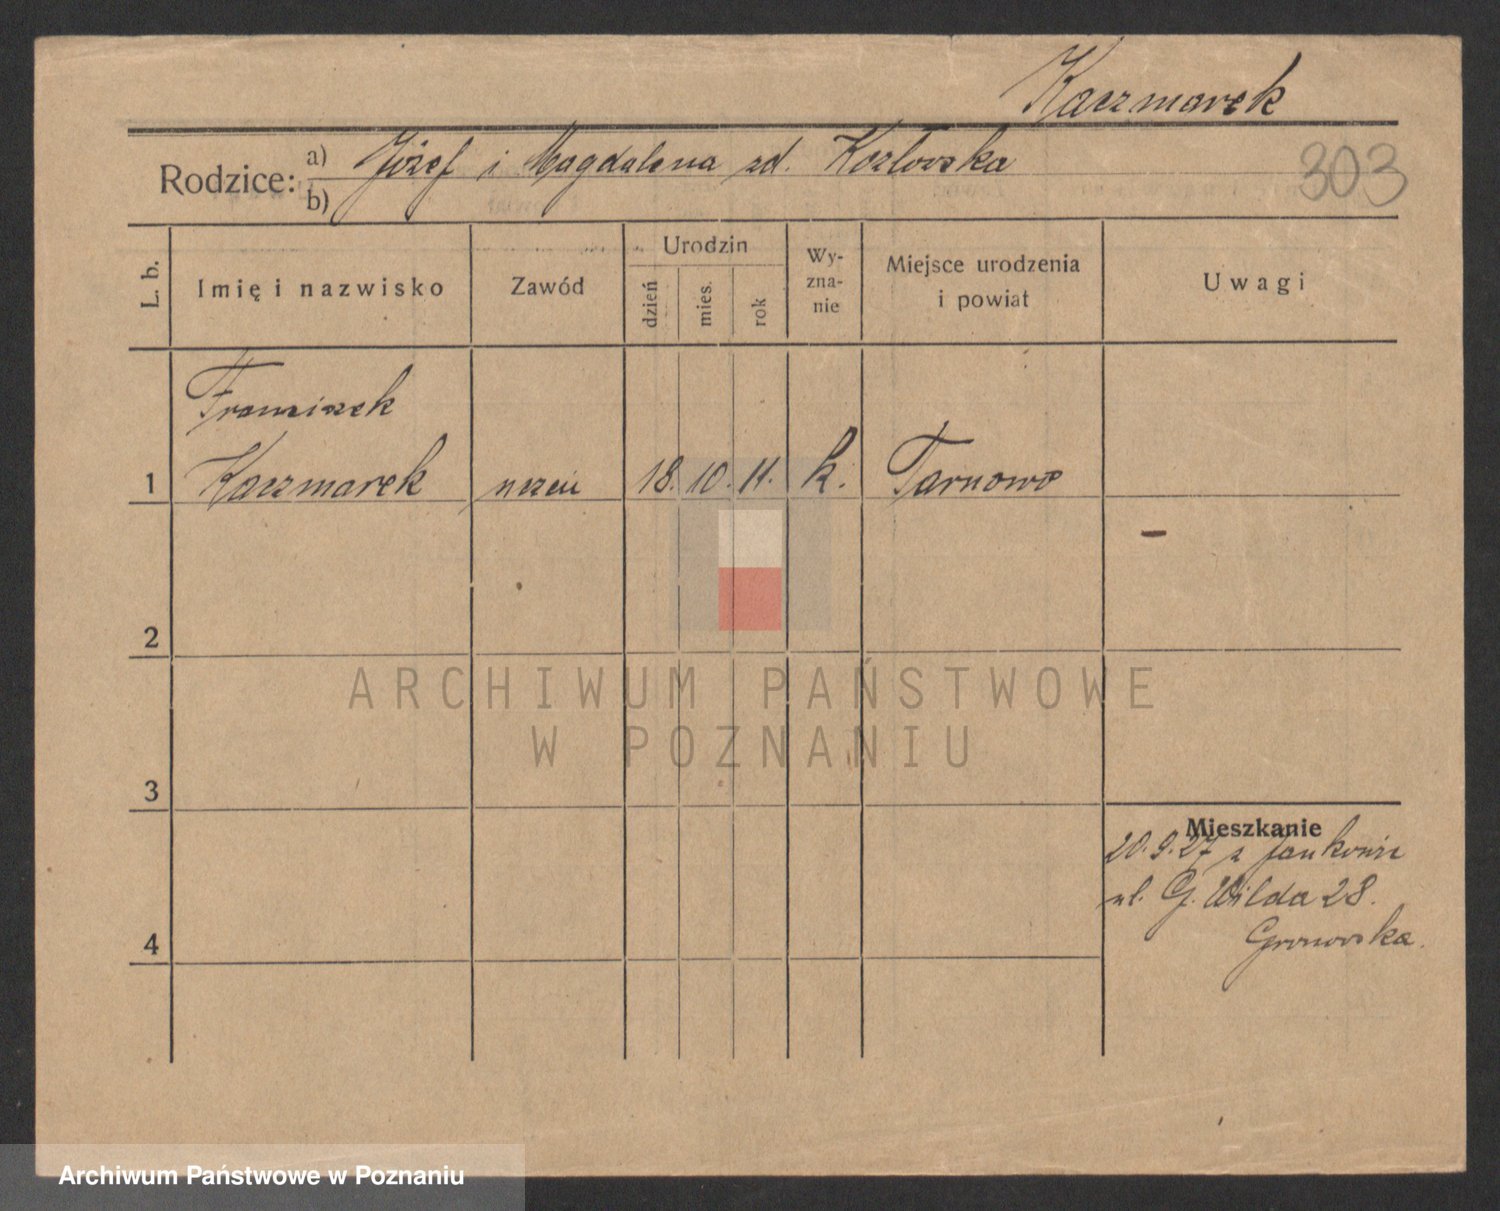 Kaczmarek
303
Rodzice: a) Józef i Magdalena zd. Kozłowska
b)
L. b.
Imię i nazwisko
Zawód
Urodzin
dzień
mies.
rok
Wy-
zna-
nie
Miejsce urodzenia
i powiat
Uwagi
Franciszek
1 Kaczmarek uczeń 18. 10. 11. k. Tarnowo
2
3
4
Mieszkanie
20.9.27 z
ul. G. Wilda 28.
Gronowska.
ARCHIWUM PAŃSTWOWE
W POZNANIU
Archiwum Państwowe w Poznaniu